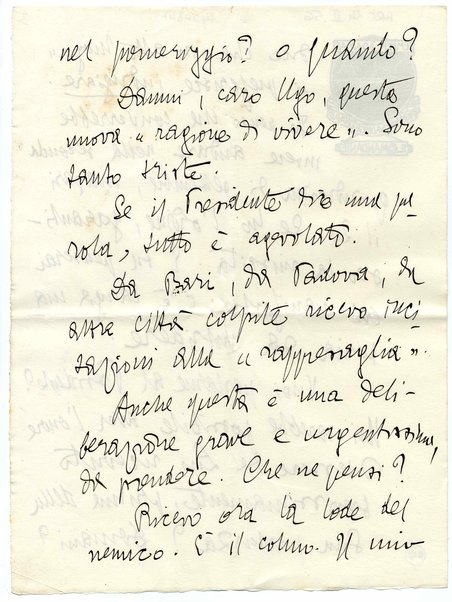 nel pomeriggio? o quando?
Dammi, caro Ugo, questa
nuova "ragione di vivere". Sono
tanto triste.
Se il Presidente dice una pa-
rola, tutto è agevolato.
Da Bari, da Padova, da
altre città colpite ricevo inci
tazioni alla "rappresaglia".
Anche questa è una deli-
berazione grave e urgentissima,
da prendere. Che ne pensi?
Ricevo ora la lode del
nemico. È il colmo. Il mio